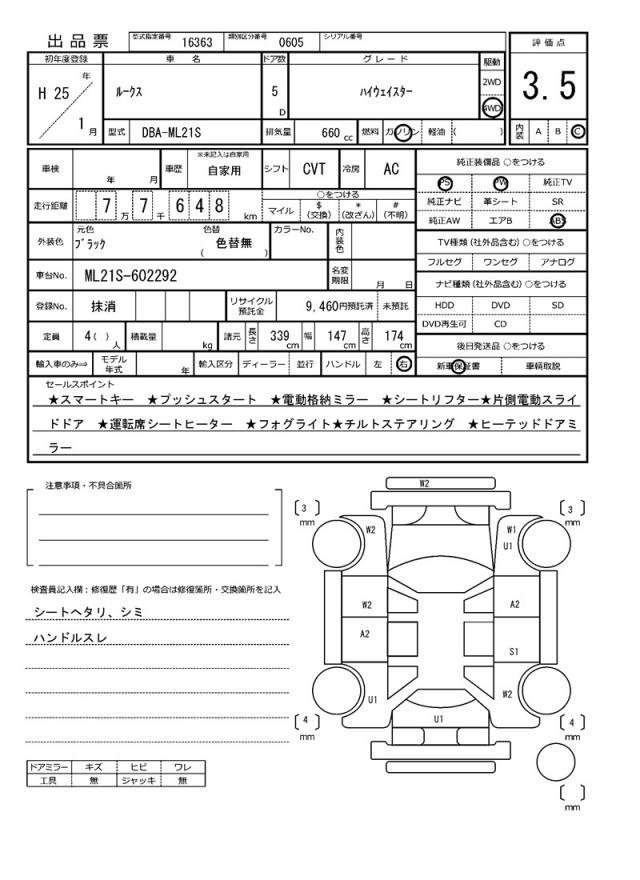 出品票
型式指定番号 16363 類別区分番号 0605 シリアル番号
初年度登録 車名 ドア数 グレード 駆動 評価点
H 25 年 1 月 ルークス 5 D ハイウェイスター 2WD 4WD 3.5
型式 DBA-ML21S 排気量 660 cc 燃料 ガソリン 軽油 ( ) 内装 A B C
車検 年 月 車歴 ※未記入は自家用 自家用 シフト CVT 冷房 AC 純正装備品 ○をつける
PS PW 純正TV
走行距離 7 万 7 千 6 4 8 km ○をつける マイル $ (交換) * (改ざん) # (不明) 純正ナビ 革シート SR
純正AW エアB ABS
外装色 元色 ブラック 色替 ( 色替無 ) カラーNo. 内装色 TV種類 (社外品含む) ○をつける
フルセグ ワンセグ アナログ
車台No. ML21S-602292 名変期限 月 日 ナビ種類 (社外品含む) ○をつける
登録No. 抹消 リサイクル預託金 9,460円預託済 未預託 HDD DVD SD
DVD再生可 CD
定員 4( ) 人 積載量 kg 諸元 長さ 339 cm 幅 147 cm 高さ 174 cm 後日発送品 ○をつける
輸入車のみ⇒ モデル年式 年 輸入区分 ディーラー 並行 ハンドル 左 右 新車保証書 車輌取説
セールスポイント
★スマートキー ★プッシュスタート ★電動格納ミラー ★シートリフター★片側電動スライ
ドドア ★運転席シートヒーター ★フォグライト★チルトステアリング ★ヒーテッドドアミ
ラー
注意事項・不具合箇所
検査員記入欄:修復歴「有」の場合は修復箇所・交換箇所を記入
シートヘタリ、シミ
ハンドルスレ
ドアミラー キズ ヒビ ワレ
工具 無 ジャッキ 無
W2
[ 3 ] mm W2 W1 [ 3 ] mm
U1
W2 A2
A2 S1
U1 W2
[ 4 ] mm U1 [ 4 ] mm
[ ] mm